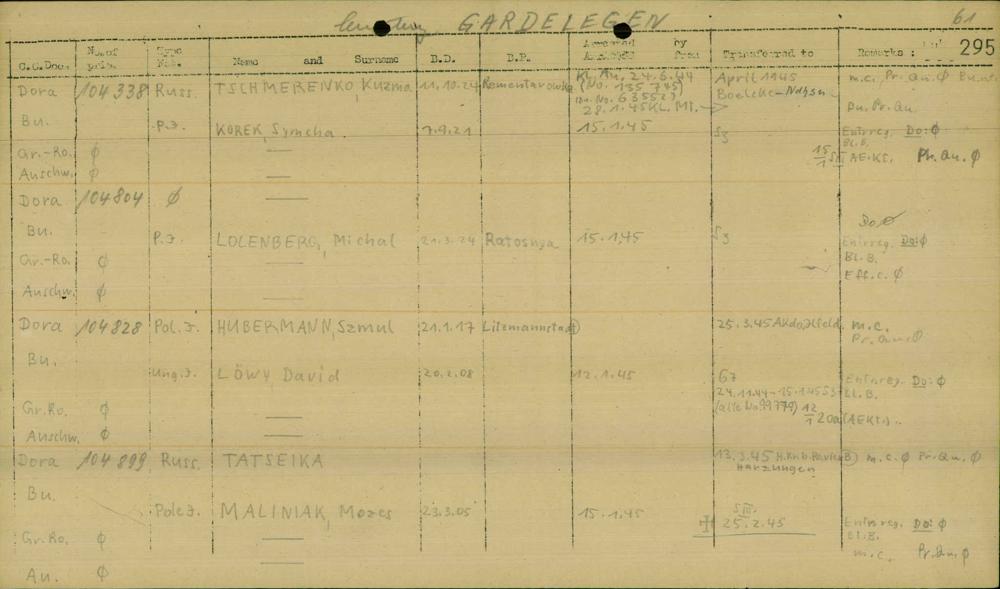 Cemetery GARDELEGEN 61
295
C.C.Doc. No. of pris. Type Nat. Name and Surname B.D. B.P. Arrested by from Transferred to Remarks :
Dora 104338 Russ. TSCHMERENKO, Kuzma 11.10.24 Rementarowka KL. Au. 24.6.44 April 1945 m.c. Pr. Qu. Ø
(No. 135745) Boelcke-Ndhsn
28.1.45 KL. Mi. Pr. Qu.
Bu. P.J. KOREK, Symcha 7.9.21 15.1.45 S3 Entrreg. Do: Ø
Bl.B.
Gr.-Ro. Ø — 15/1 SIII AE.Kt. Pr. Qu. Ø
Auschw. Ø —
Dora 104804 Ø —
Do. Ø
Bu. P.J. LOLENBERG, Michal 21.3.24 Ratosnya 15.1.45 S3 Entrreg. Do: Ø
Gr.-Ro. Ø Bl. B.
Eff.c. Ø
Auschw. Ø —
Dora 104828 Pol.J. HUBERMANN, Szmul 21.1.17 Litzmannstadt 25.3.45 AKdo, Ilfeld m.c.
Pr. Qu. Ø
Bu. Ung.J. LÖWY David 20.2.08 12.1.45 67 Entrreg. Do: Ø
24.11.44-15.1.45 S3 Bl. B.
Gr.Ro. Ø — (alte No 99779) 12/1 20a (AEKt.)
Auschw. Ø —
Dora 104899 Russ. TATSEIKA 13.3.45 H.Kr.b. Revier B) m.c. Ø Pr. Qu. Ø
Harzungen
Bu. Pole J. MALINIAK, Mozes 23.3.05 15.1.45 SIII.
25.2.45 Entrreg. Do: Ø
Gr.-Ro. Ø — Bl.B.
m.c. Pr. Qu. Ø
Au. Ø —